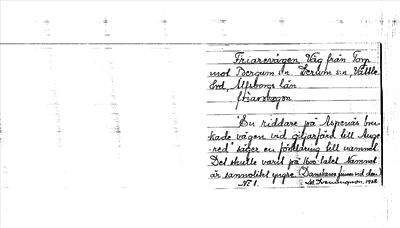 Friarevägen, Väg från Torp
mot Bergum s:n Lerum s:n, Vättle
hd, Älfsborgs län
friarevägen
"En riddare på Aspenäs bru-
kade vägen vid giljarfärd till Auge-
red" säger en förklaring till namnet.
Det skulle varit på 1600-talet. Namnet
är sannolikt yngre. (Danskarne finnas vid den)
Nr 1.